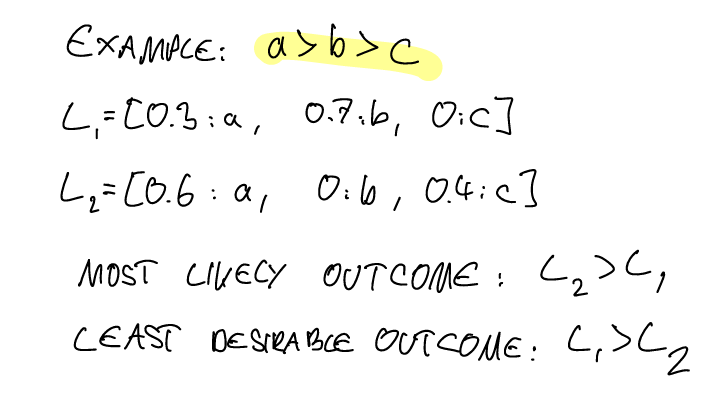 EXAMPLE: a > b > c
L₁ = [0.3 : a, 0.7 : b, 0 : c]
L₂ = [0.6 : a, 0 : b, 0.4 : c]
MOST LIKELY OUTCOME : L₂ > L₁
LEAST DESIRABLE OUTCOME : L₁ > L₂